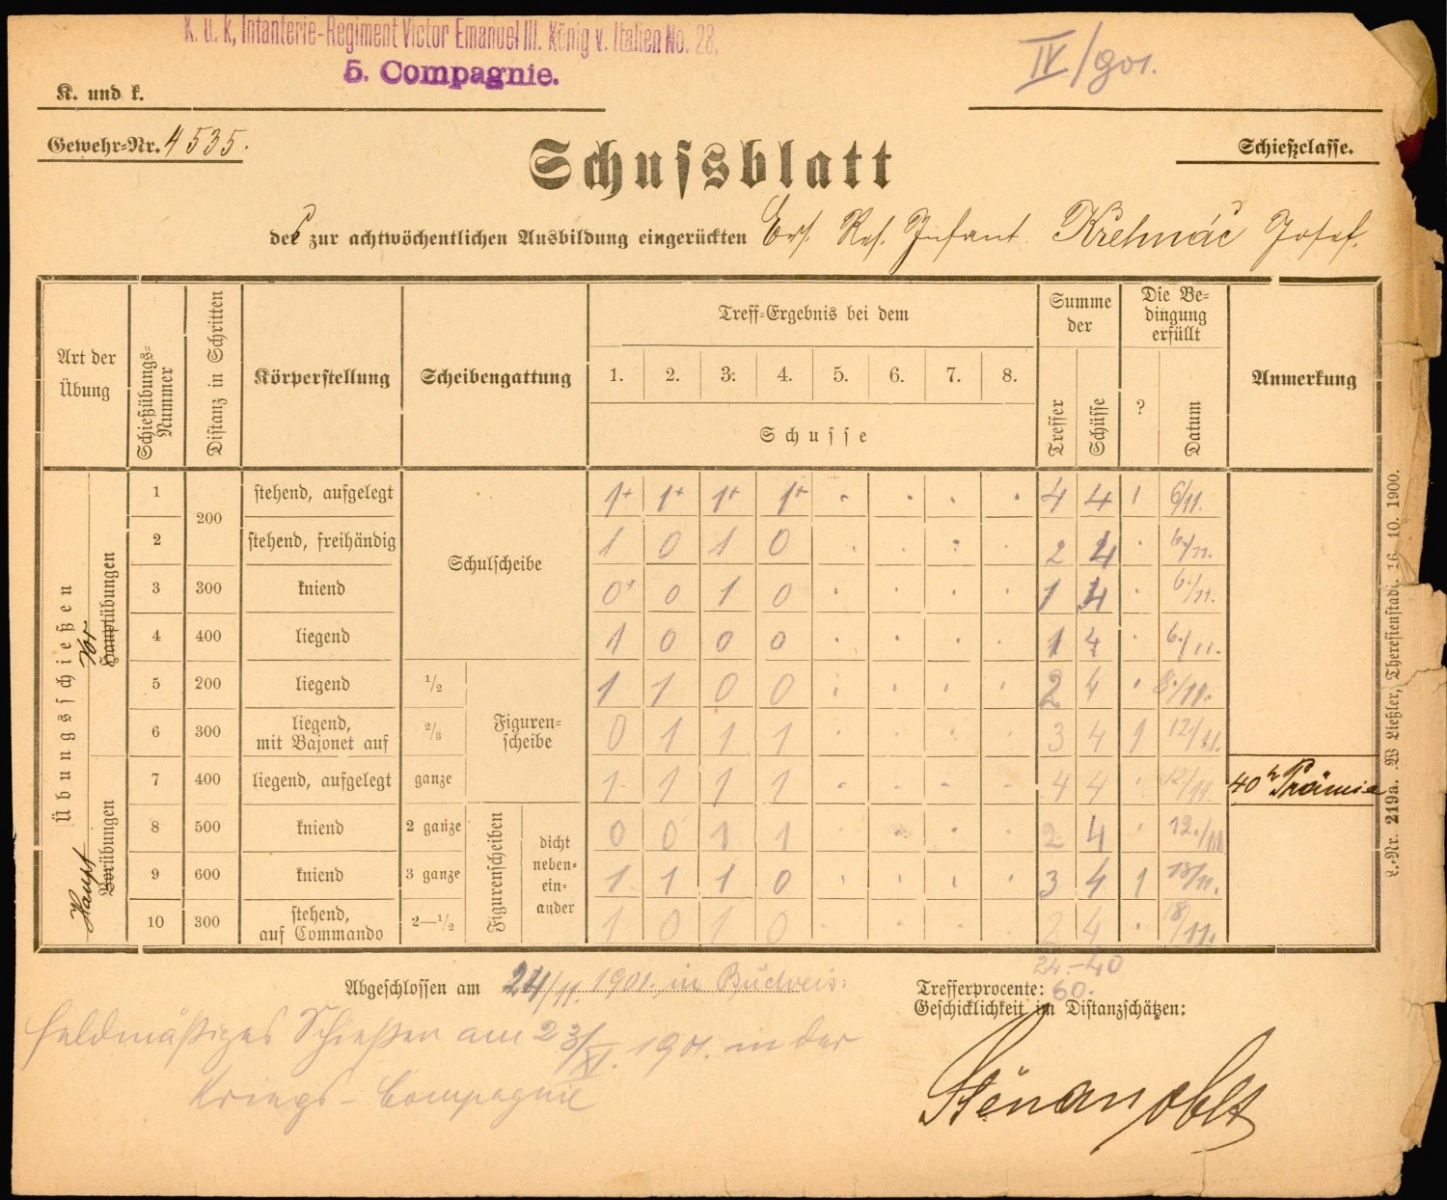 K. u. k. Infanterie-Regiment Victor Emanuel III. König v. Italien No. 28.
5. Compagnie.
IV/901.
K. und k.
Gewehr-Nr. 4535.
Schießclasse.
Schussblatt
des zur achtwöchentlichen Ausbildung eingerückten Ers. Res. Infant. Josef.
Art der Übung
Schießübungs-Nummer
Distanz in Schritten
Körperstellung
Scheibengattung
Treff-Ergebnis bei dem
1. 2. 3. 4. 5. 6. 7. 8.
Schusse
Summe der
Treffer
Schüsse
Die Bedingung erfüllt
?
Datum
Anmerkung
Übungsschießen
Hauptübungen
Vor
Vorübungen
Haupt
1 200 stehend, aufgelegt Schulscheibe 1+ 1+ 1+ 1+ . . . . 4 4 1 6/11.
2 stehend, freihändig 1 0 1 0 . . . . 2 4 . 6./11.
3 300 kniend 0+ 0 1 0 . . . . 1 4 . 6./11.
4 400 liegend 1 0 0 0 . . . . 1 4 . 6./11.
5 200 liegend 1/2 Figuren-scheibe 1 1 0 0 . . . . 2 4 . 8./11.
6 300 liegend, mit Bajonet auf 2/3 0 1 1 1 . . . . 3 4 1 12/11.
7 400 liegend, aufgelegt ganze 1 1 1 1 . . . . 4 4 . 12/11. 40 h Prämie
8 500 kniend 2 ganze Figurenscheiben dicht neben-ein-ander 0 0 1 1 . . . . 2 4 . 12./11.
9 600 kniend 3 ganze 1 1 1 0 . . . . 3 4 1 13/11.
10 300 stehend, auf Commando 2—1/2 1 0 1 0 . . . . 2 4 . 18/11.
24.-40
Abgeschlossen am 24/11. 1901. in Budweis.
Trefferprocente: 60.
Geschicklichkeit im Distanzschätzen:
feldmäßiges Schießen am 23/XI. 1901. in der
Kriegs-Compagnie
Oblt
L.-Nr. 219a. W Ließler, Theresienstadt. 16 10. 1900.